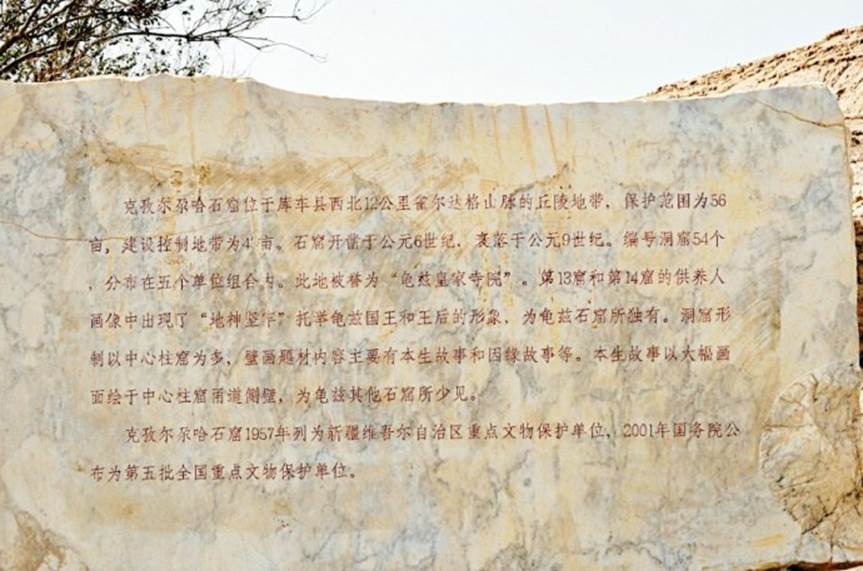 克孜尔尕哈石窟位于库车县西北12公里雀尔达格山脉的丘陵地带，保护范围为56
亩，建设控制地带为4 亩。石窟开凿于公元6世纪，衰落于公元9世纪。编号洞窟54个
，分布在五个单位组合内。此地被誉为“龟兹皇家寺院”。第13窟和第14窟的供养人
画像中出现了“地神 ”托举龟兹国王和王后的形象，为龟兹石窟所独有。洞窟形
制以中心柱窟为多，壁画题材内容主要有本生故事和因缘故事等。本生故事以大幅画
面绘于中心柱窟甬道侧壁，为龟兹其他石窟所少见。
克孜尔尕哈石窟1957年列为新疆维吾尔自治区重点文物保护单位，2001年国务院公
布为第五批全国重点文物保护单位。